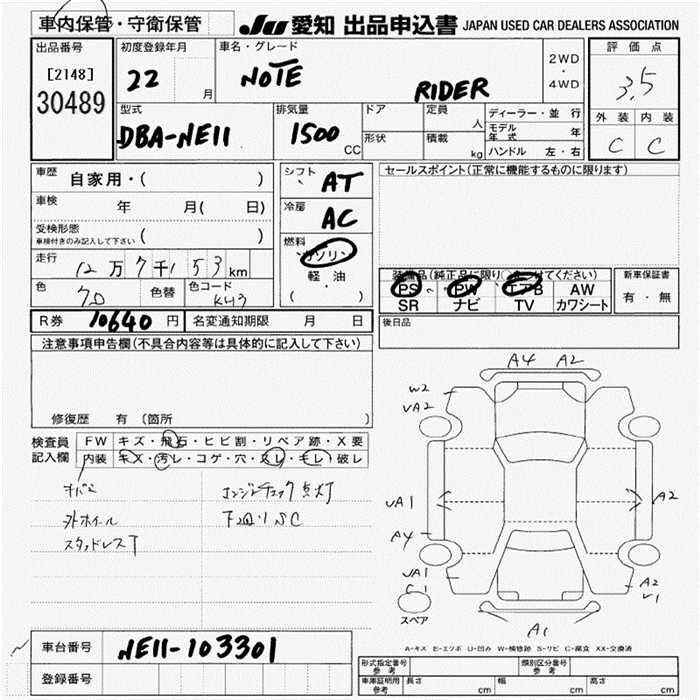 車内保管・守衛保管
JU 愛知 出品申込書 JAPAN USED CAR DEALERS ASSOCIATION
出品番号
[2148]
30489
初度登録年月
22 月
車名・グレード
NOTE RIDER
2WD
・
4WD
評価点
3.5
外装 内装
C C
型式
DBA-NE11
排気量
1500 CC
ドア
形状
定員 人
積載 kg
ディーラー・並行
モデル年式 年
ハンドル 左・右
車歴
自家用・( )
車検 年 月( 日)
受検形態
車検付きのみ記入して下さい ( )
走行
12万7千153km
色 色替 色コード
KH3
シフト
AT
冷房
AC
燃料
ガソリン
軽油
・
( )
セールスポイント(正常に機能するものに限ります)
装備品(純正品に限り○をつけてください)
PS PW エアB AW
SR ナビ TV カワシート
新車保証書
有・無
R券 10640円 名変通知期限 月 日
後日品
注意事項申告欄(不具合内容等は具体的に記入して下さい)
修復歴 有 〔箇所
検査員
記入欄
FW キズ・飛石・ヒビ割・リペア跡・X要
内装 キズ・汚レ・コゲ・穴・スレ・モレ・破レ
エンジンチェック点灯
外ホイール
下回りSC
スタッドレスT
A4 A2
W2
UA2
UA1
A2
A4
UA1
C1
A2
V1
スペア
A1
A-キズ E-エクボ U-凹み W-補修跡 S-サビ C-腐食 XX-交換済
車台番号
NE11-103301
登録番号
形式指定番号
参考
類別区分番号
参考
車庫証明用
参考
長さ cm 幅 cm 高さ cm